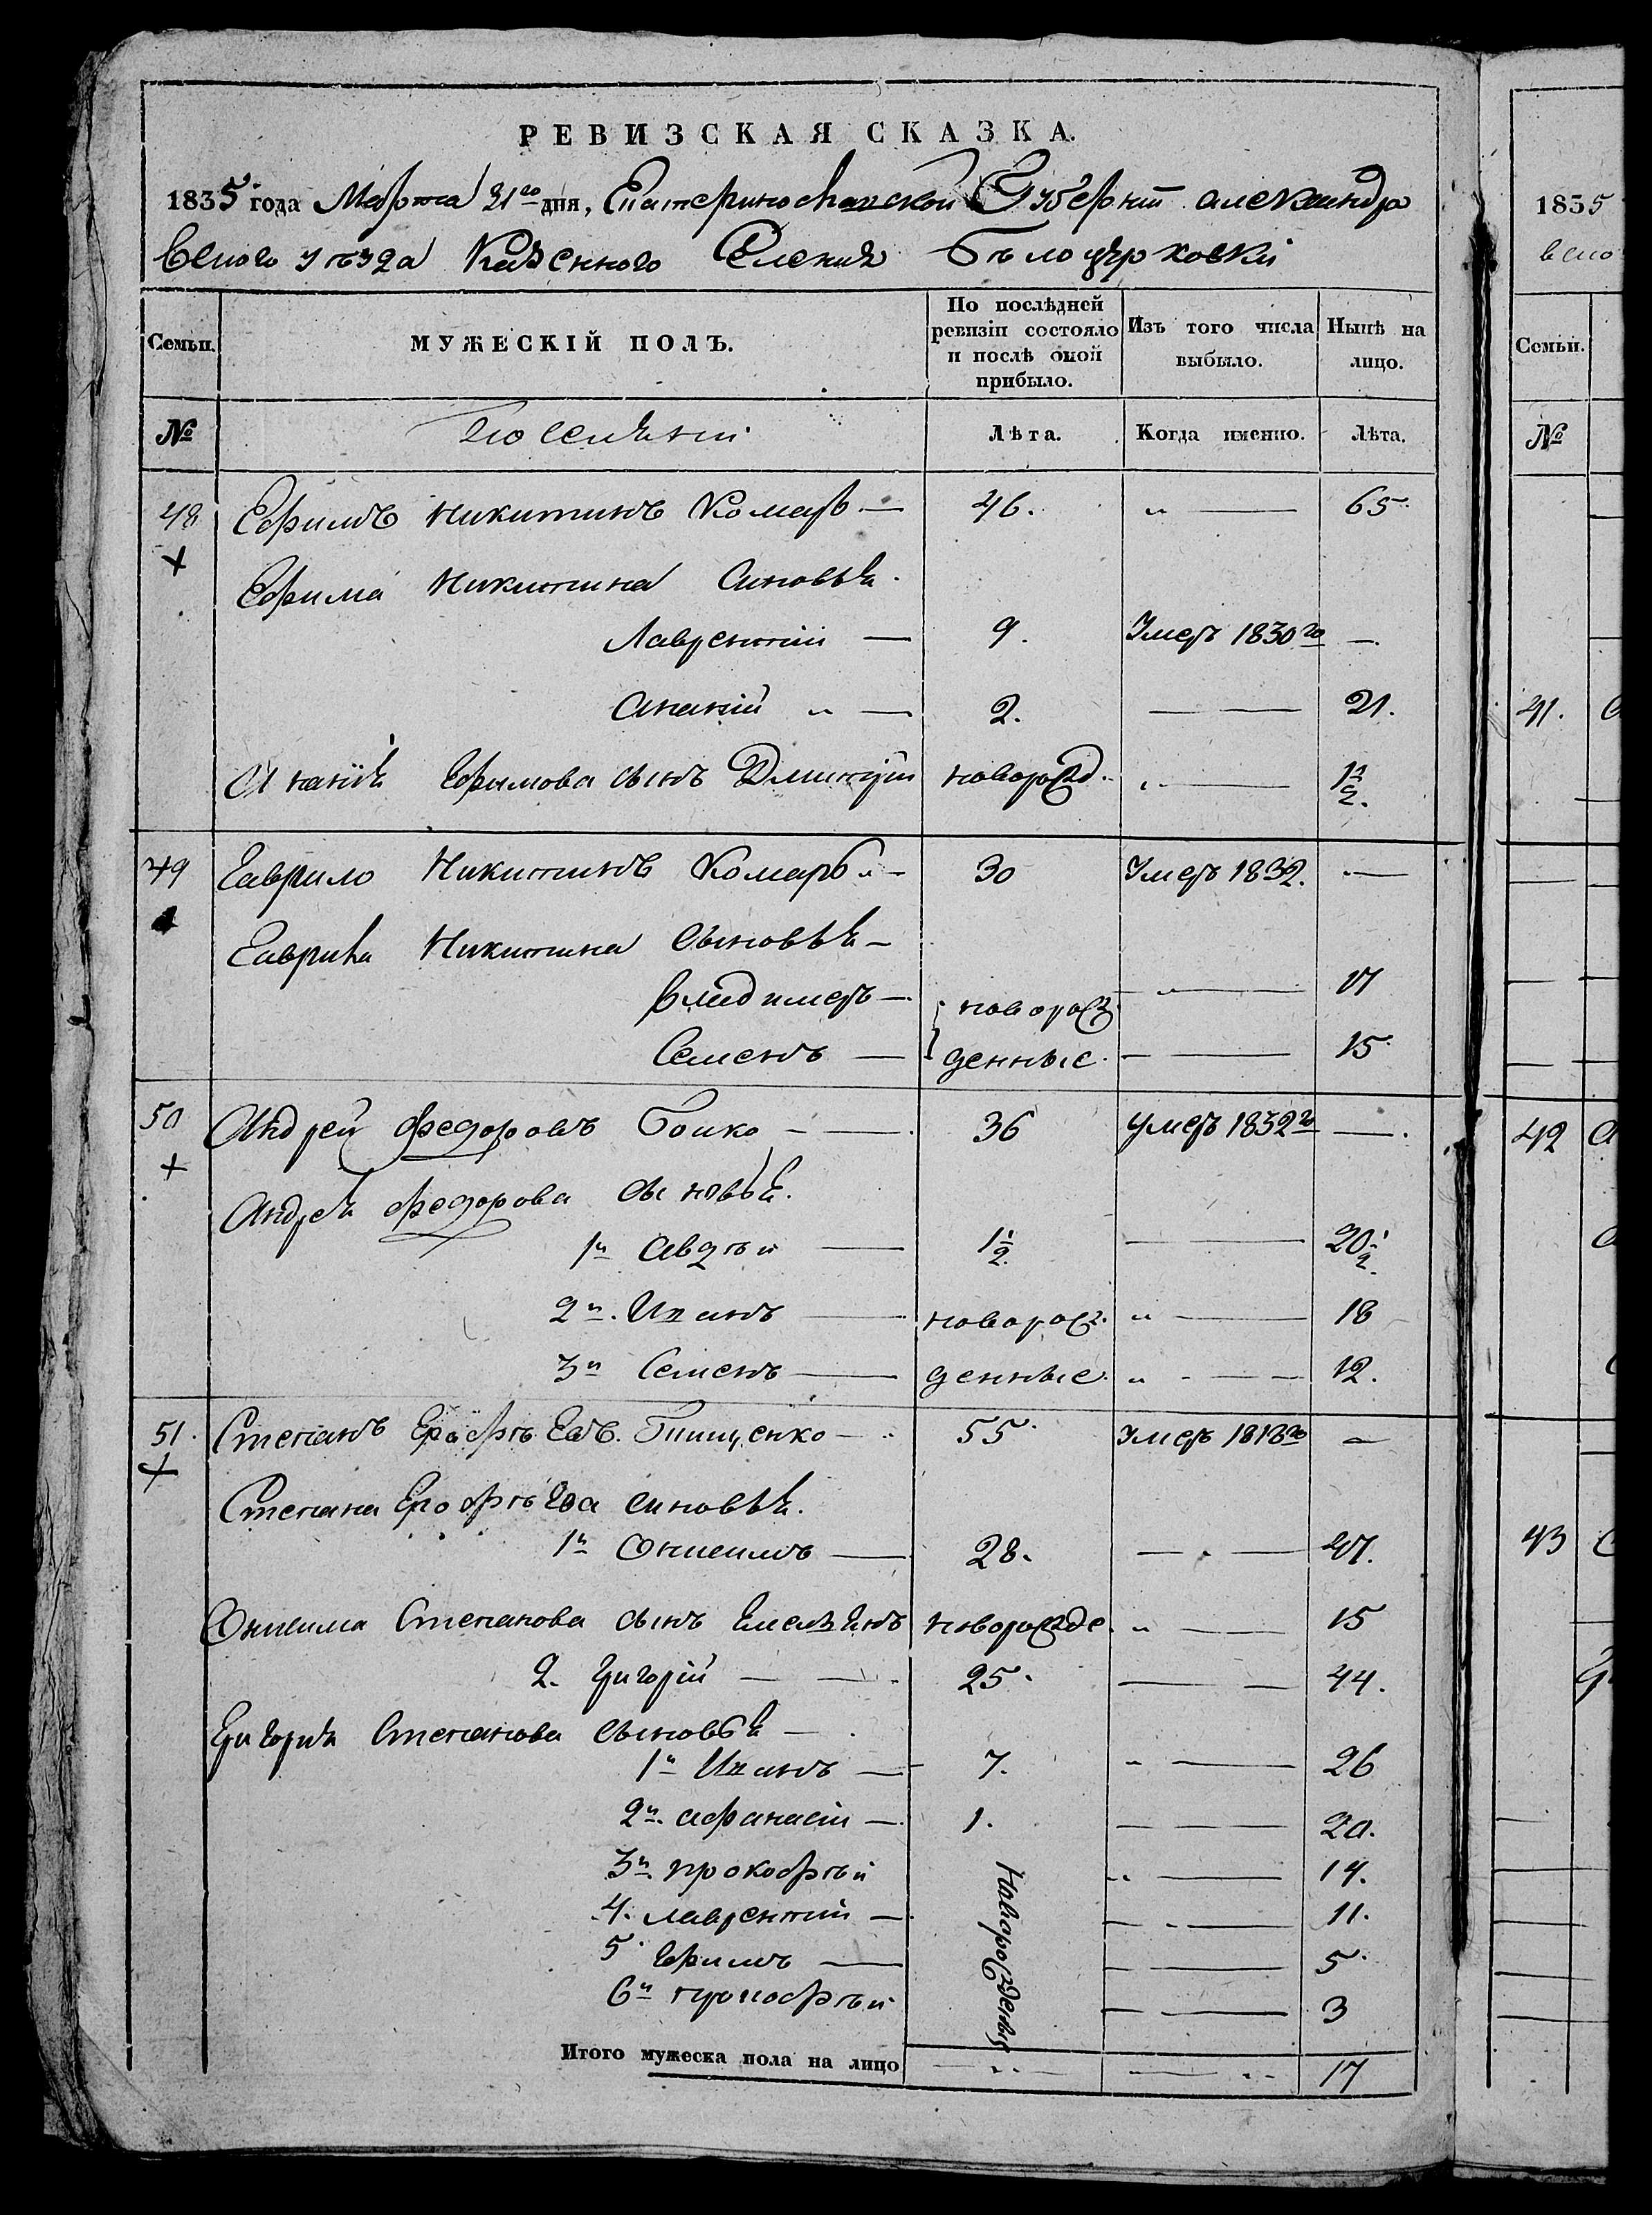 РЕВИЗСКАЯ СКАЗКА.
1835 года Марта 21го дня, Екатеринославской Губерніи александро
вского уезда Казенного Селения Белоцерковки
Семьи. МУЖЕСКІЙ ПОЛЪ. По послѣдней ревизіи состояло и послѣ оной прибыло. Изъ того числа выбыло. Нынѣ на лицо.
№ Лѣта. Когда именно. Лѣта.
48 Ефимъ Никитинъ Комаръ — 46. „ — 65.
Ефима Никитина Синовья.
Лаврентій — 9. Умеръ 1830го —.
Ананій „ — 2. — 21.
Ананія Ефимова сынъ Дмитрій новорожд. „ — 1 1/2.
49 Гаврило Никитинъ Комаръ „ – 30 Умеръ 1832. „—
Гаврила Никитина Сыновья –
Владимеръ — новорож „ — 17
Семенъ — денные. — 15.
50 Андрей Федоровъ Бойко — 36 умеръ 1832го —.
Андрея Федорова Сыновья.
1й Авдѣй — 1 1/2. — 20 1/2.
2й. Иванъ — новорож. „ — 18
3й Семенъ — денные. „ — 12.
51. Степанъ Ерофѣевъ. — „ 55. Умеръ 1818го —
Степана Ерофѣева синовья.
1й Онисимъ — 28. — 47.
Онисима Степанова сынъ Емельянъ новорожде. „ — 15
2. Григорій — 25. — 44.
Григорія Степанова сыновья —
1й Иванъ — 7. „ — 26
2й. афанасій — 1. — 20.
3й. прокофѣй Новорожденыя „ — 14.
4. лаврентій — — 11.
5. Ефимъ — — 5.
6й прокофѣй — 3
Итого мужеска пола на лицо — „ — — „ 17
1835
вско
Семьи.
№
41.
42
43